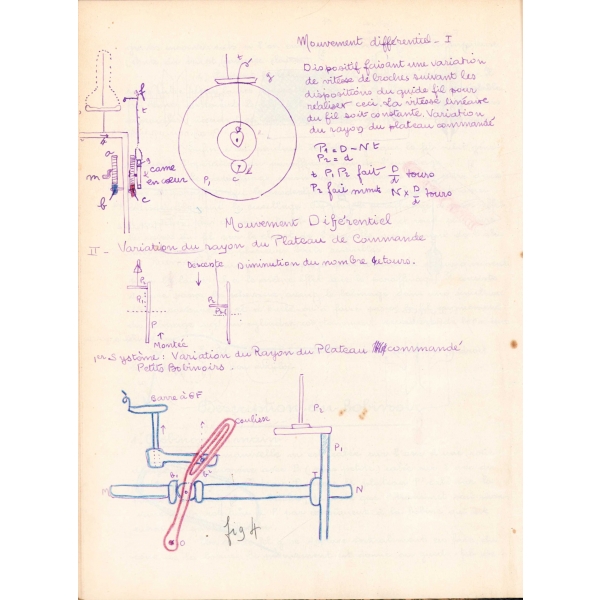 Mouvement différentiel - I
Dispositif faisant une variation
de vitesse de broches suivant les
dispositions du guide fil pour
réaliser ceci. La vitesse linéaire
du fil soit constante. Variation
du rayon du plateau commandé
P1 = D - N t
P2 = d
t P1 P2 fait D/d tours
P2 fait N x D/d tours
f
t
a
m
b
c
came
en cœur
t
P1
c
Mouvement Diférentiel
II - Variation du rayon du Plateau de Commande
Descente Diminution du nombre tours.
P2
P
↑ Montée
1er Système : Variation du Rayon du Plateau commandé
Petits Bobinoirs.
barre à GF
coulisse
P2
P1
M
T
N
O
fig 4